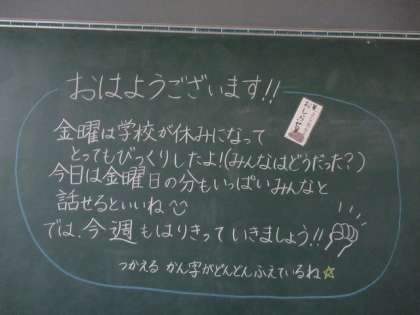 おはようございます!!
金曜は学校が休みになって
とってもびっくりしたよ!(みんなはどうだった?)
今日は金曜日の分もいっぱいみんなと
話せるといいね
では、今週もはりきっていきましょう!!
つかえる かん字がどんどんふえているね☆